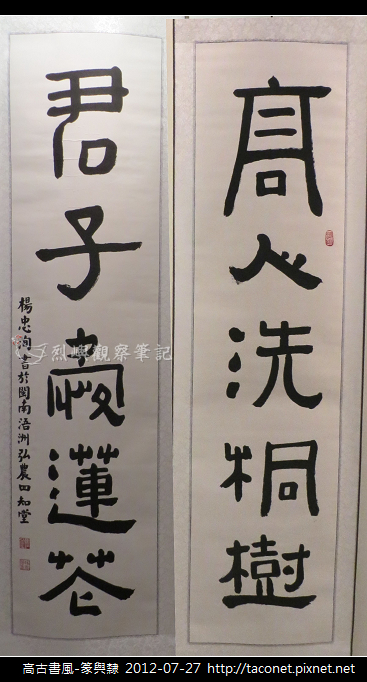 高人洗桐樹
君子愛蓮花
楊忠洵書於閩南浯洲弘農四知堂
烈嶼觀察筆記
高古書風-篆與隸 2012-07-27 http://taconet.pixnet.net